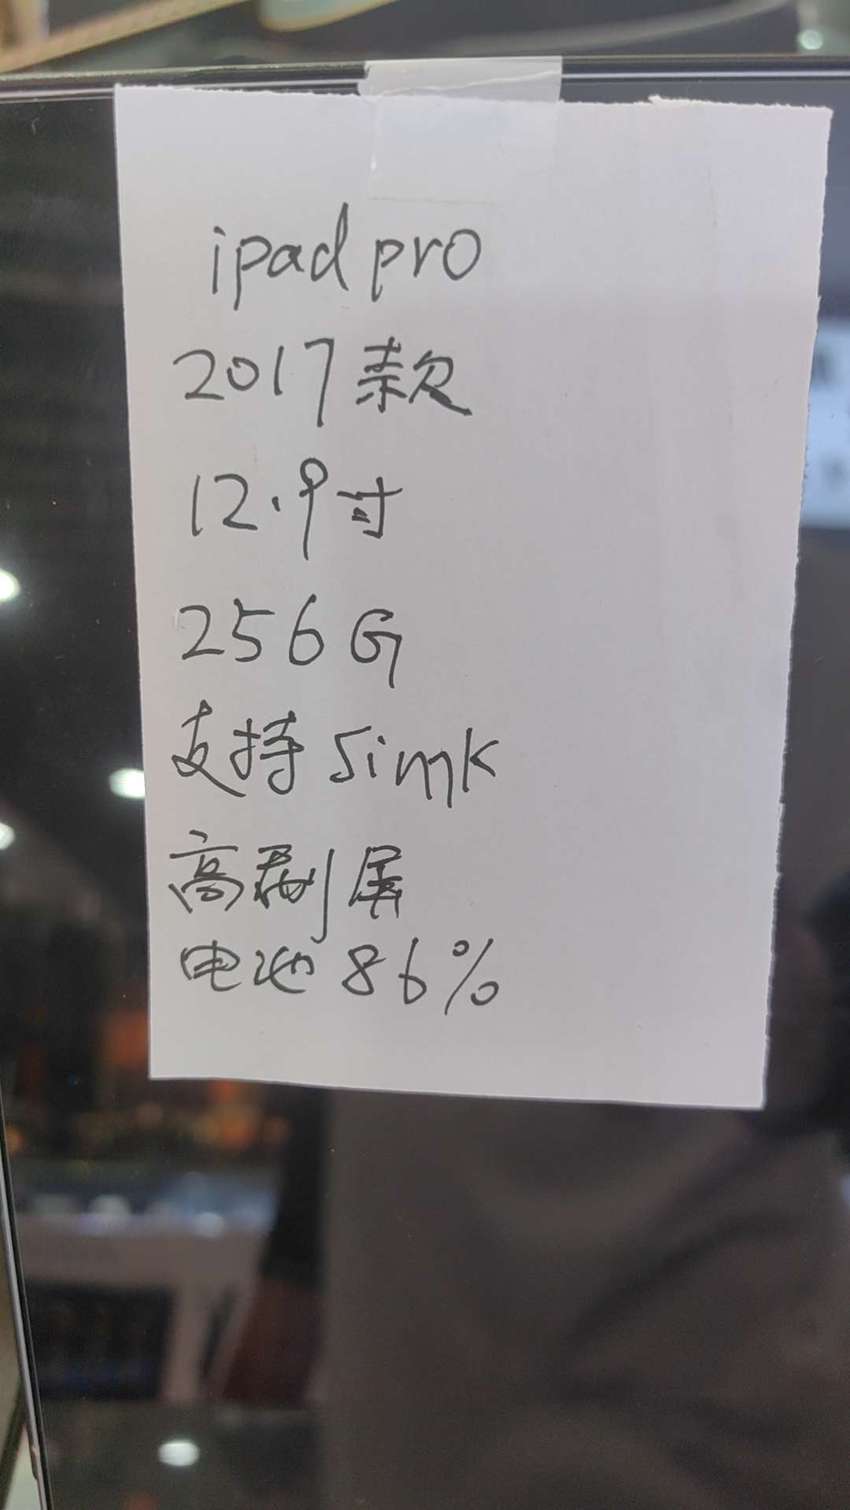 ipad pro
2017款
12.9寸
256G
支持simk
高刷屏
电池86%